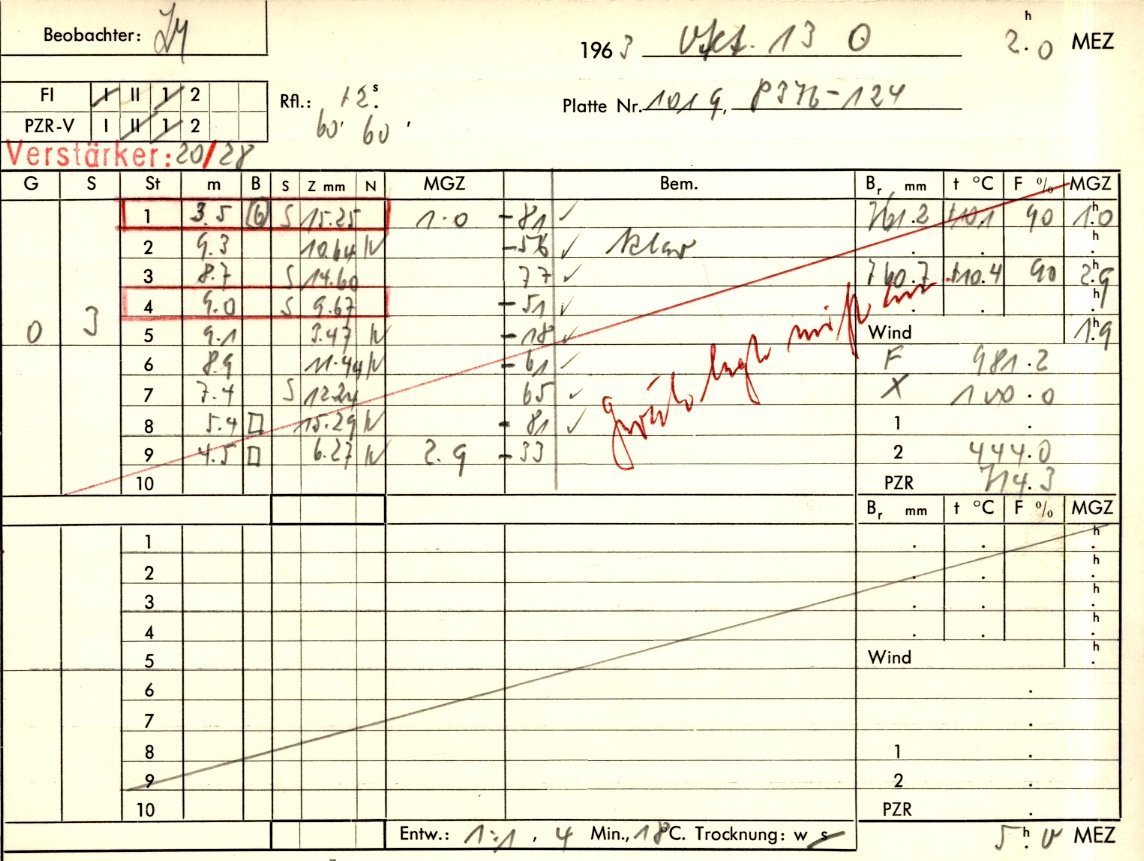 Beobachter:
1963 Okt. 13 0 2ʰ.0 MEZ
FI I II 1 2
PZR-V I II 1 2
Rfl.: 12.ˢ
60. 60.
Platte Nr. 1019, P376-124
Verstärker: 20/28
G S St m B S Z mm N MGZ Bem. Bᵣ mm t °C F % MGZ
1 3.5 6 S 15.25 1.0 -81 ✓ 761.2 +10.1 90 1ʰ.0
2 9.3 10.64 N -56 ✓ klar
3 8.7 S 14.60 77 ✓ 760.7 +10.4 90 2ʰ.9
4 9.0 S 9.67 -51 ✓
0 3 5 9.1 3.47 N -18 ✓ Wind 1ʰ.9
6 8.9 11.44 N -61 ✓ F 981.2
7 7.4 S 12.24 65 ✓ X 100.0
8 5.4 □ 15.29 N -81 ✓ 1 .
9 4.5 □ 6.27 N 2.9 -33 2 444.0
10 PZR 714.3
Bᵣ mm t °C F % MGZ
1
2
3
4
5 Wind
6
7
8 1
9 2
10 PZR
Entw.: 1:1, 4 Min., 18°C. Trocknung: w s 5ʰ.0 MEZ